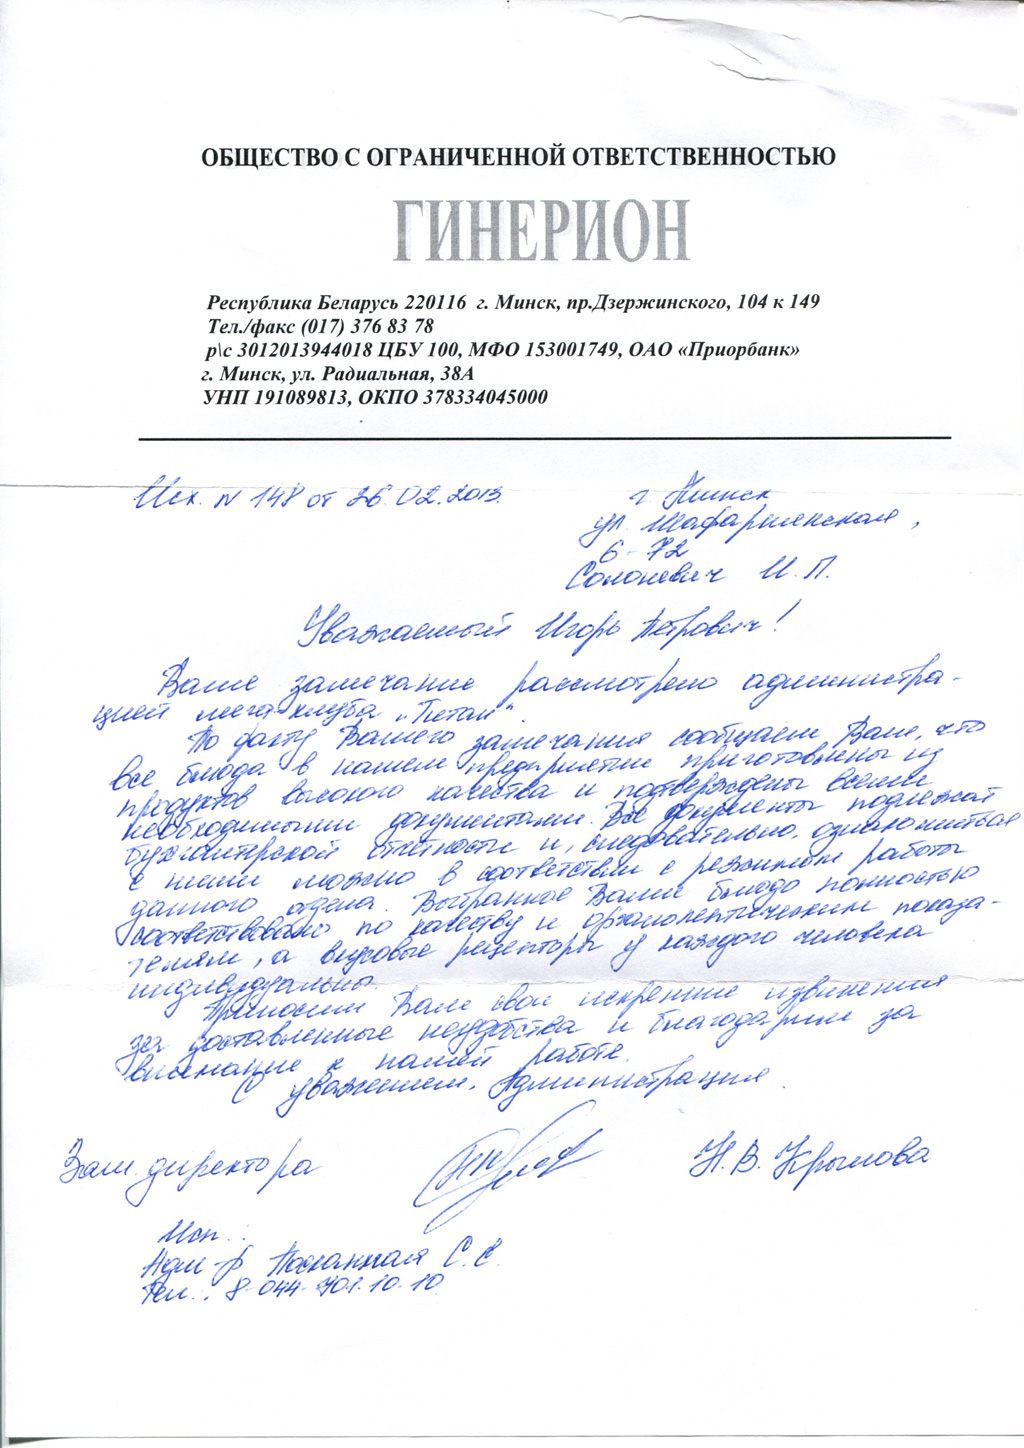 ОБЩЕСТВО С ОГРАНИЧЕННОЙ ОТВЕТСТВЕННОСТЬЮ
ГИНЕРИОН
Республика Беларусь 220116 г. Минск, пр.Дзержинского, 104 к 149
Тел./факс (017) 376 83 78
р\с 3012013944018 ЦБУ 100, МФО 153001749, ОАО «Приорбанк»
г. Минск, ул. Радиальная, 38А
УНП 191089813, ОКПО 378334045000
Исх. N 148 от 26.02.2013
г
ул.
6-72
Солоневич И.П.
Уважаемый Игорь Петрович!
Ваше замечание рассмотрено администра-
цией мега-клуба
По факту Вашего замечания сообщаем Вам, что
все блюда в нашем предприятии приготовлены из
продуктов высокого качества и подтверждены всеми
необходимыми документами. Все документы подлежат
бухгалтерской отчетности и, следовательно, ознакомиться
с ними можно в соответствии с режимом работы
данного отдела. Выбранное Вами блюдо полностью
соответствовало по качеству и органолептическим показа-
телям, а вкусовые рецепторы у каждого человека
индивидуальны.
Приносим Вам свои искренние извинения
за доставленные неудобства и благодарим за
внимание к нашей работе.
С уважением, Администрация.
Зам. директора Н.В. Крылова
Исп.:
Адм-р С.С.
Тел.: 8-044-701.10.10